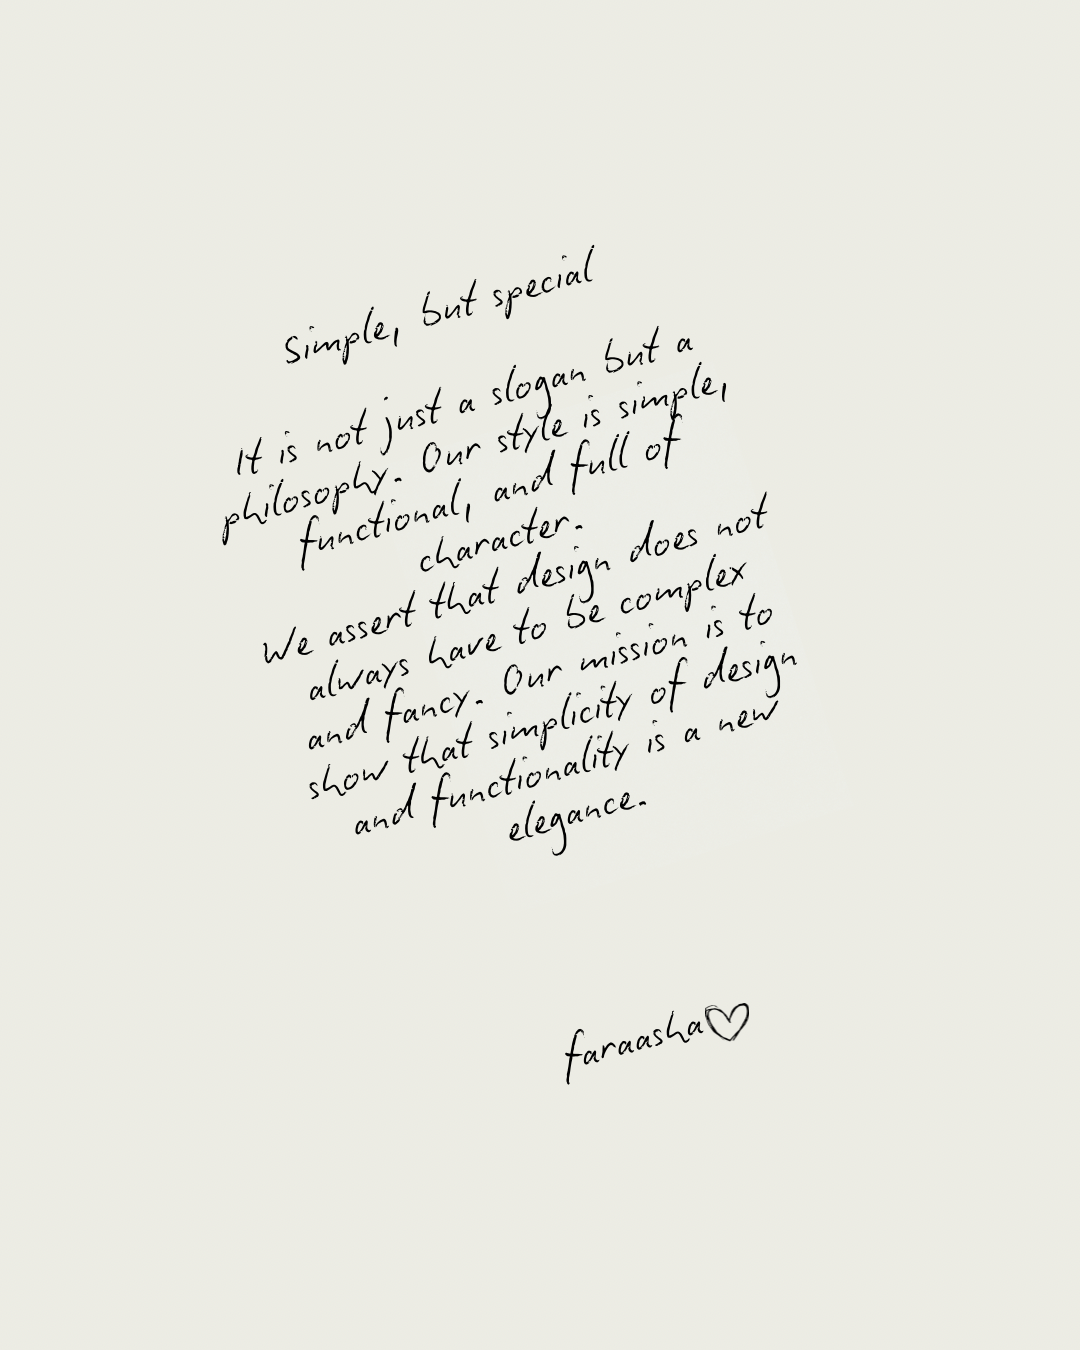 Simple, but special
It is not just a slogan but a
philosophy. Our style is simple,
functional, and full of
character.
We assert that design does not
always have to be complex
and fancy. Our mission is to
show that simplicity of design
and functionality is a new
elegance.
faraasha♡